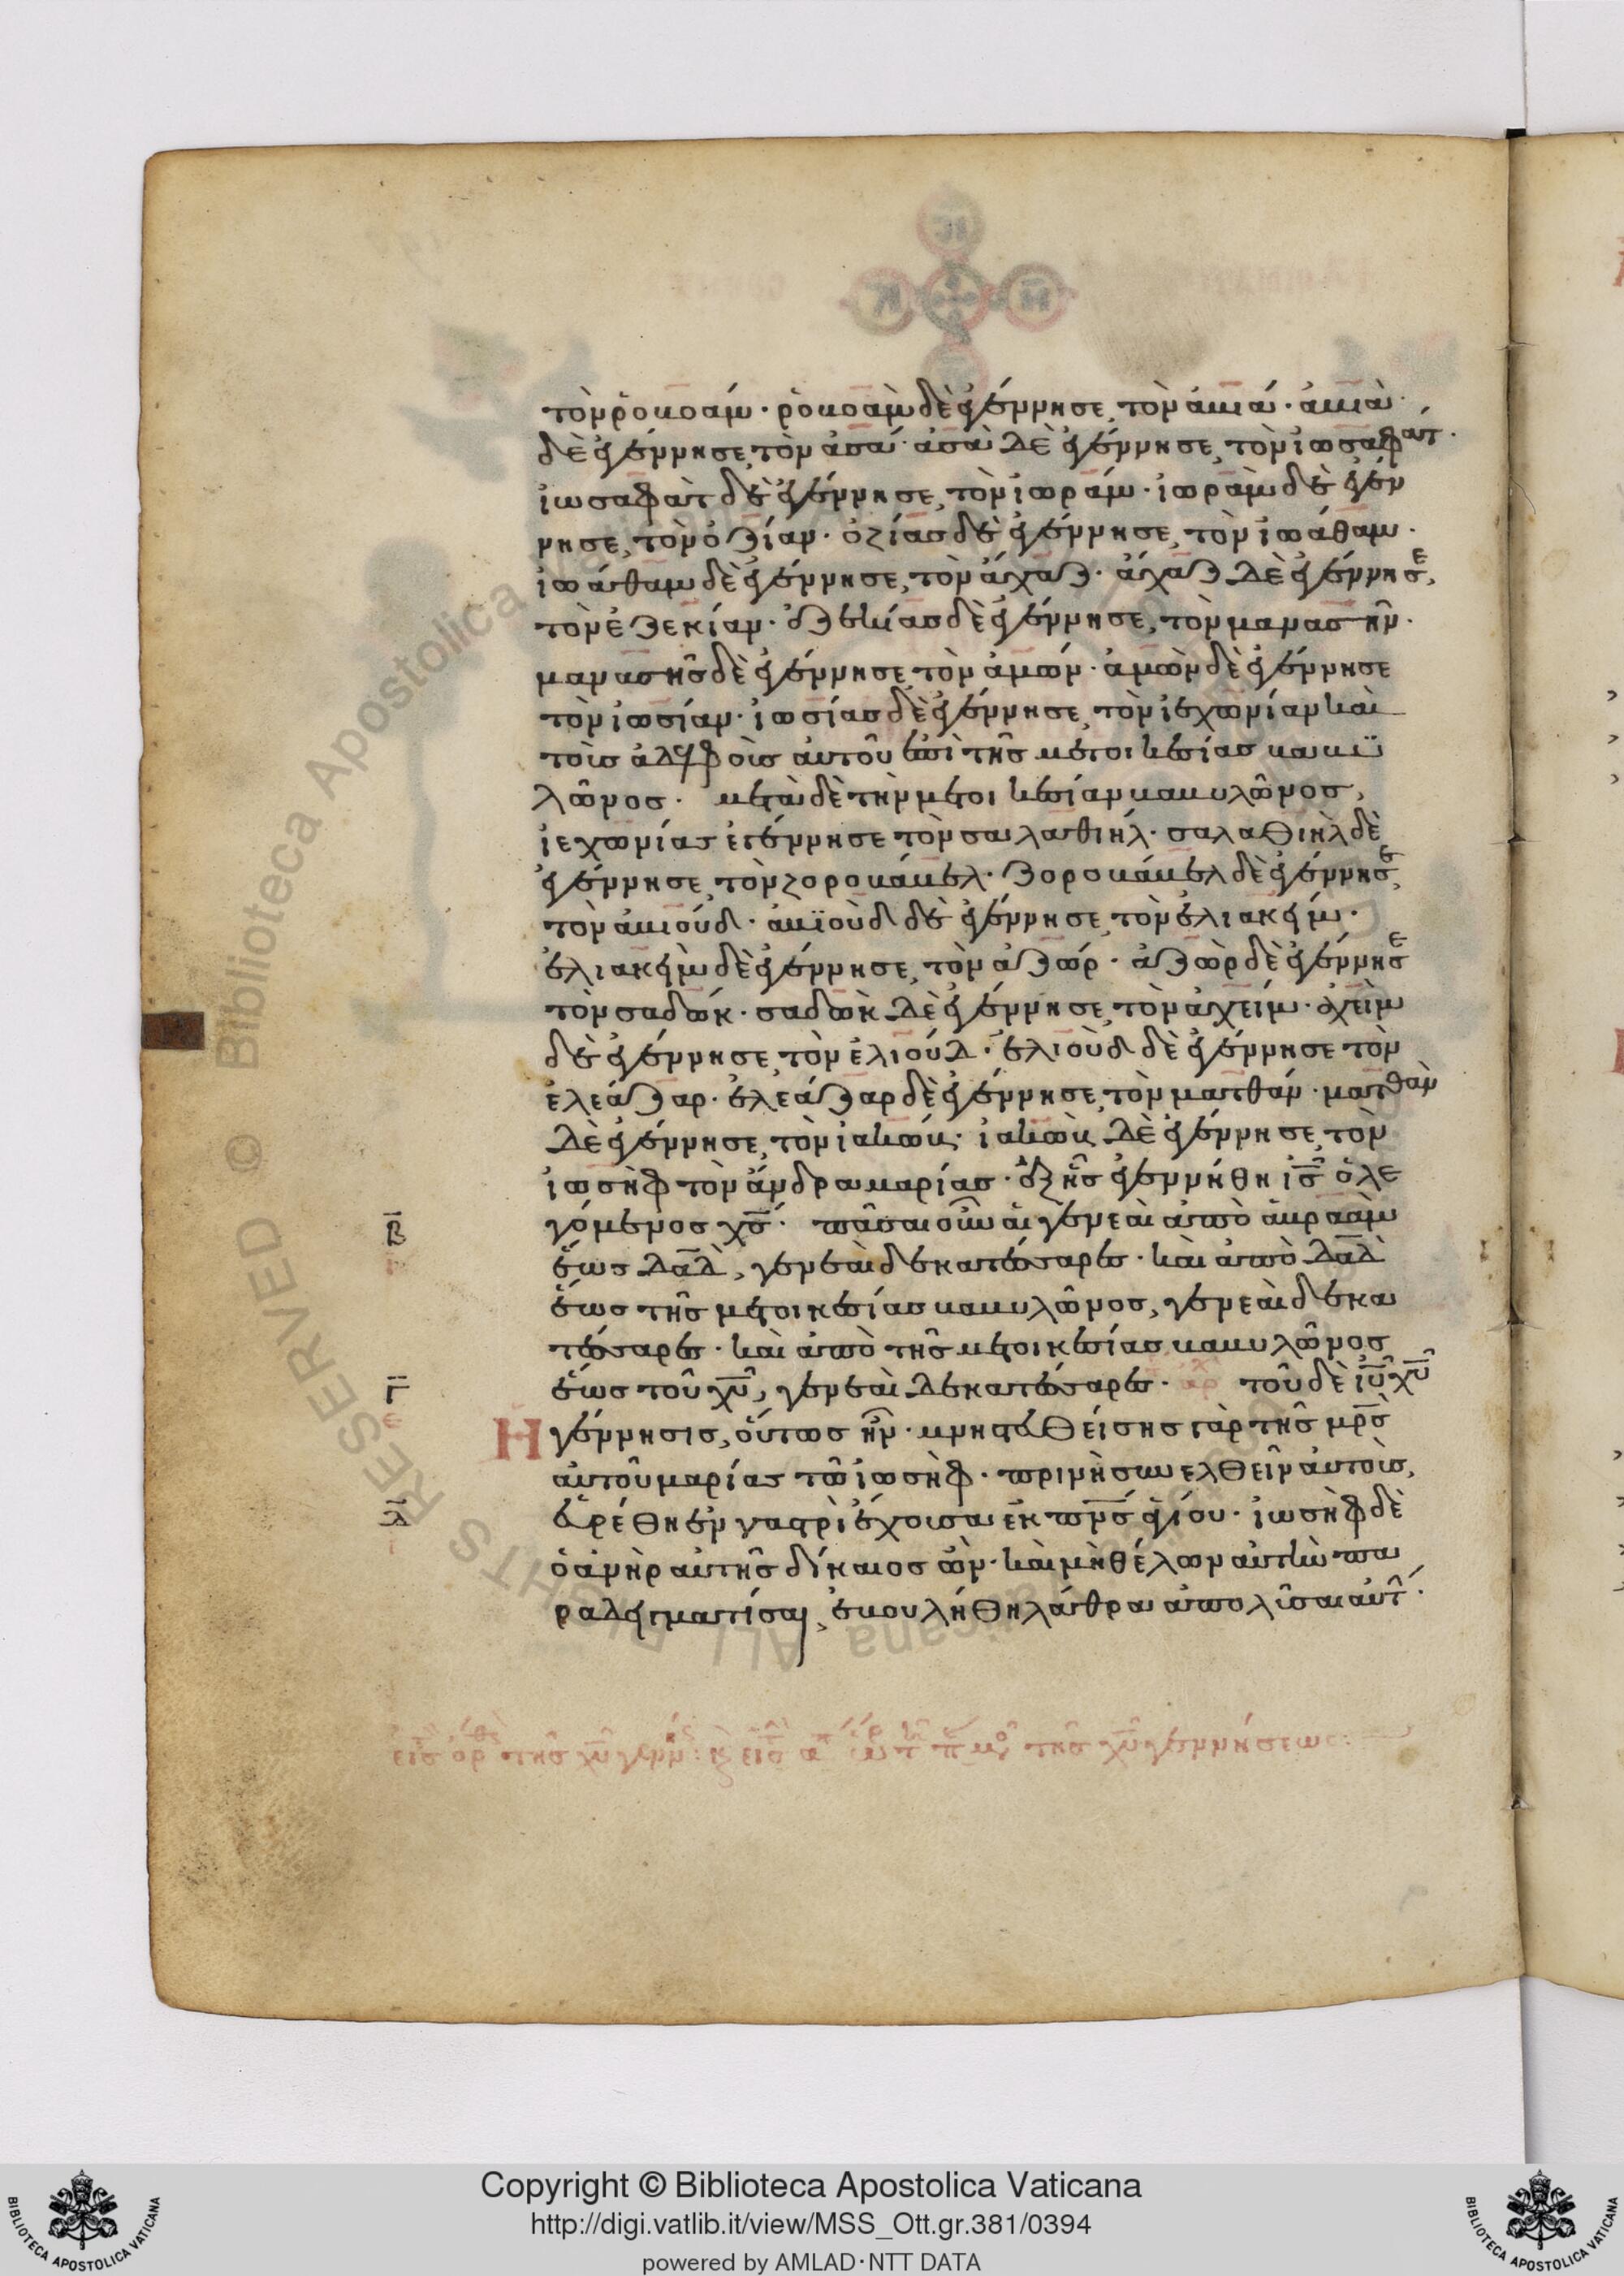 τὸν ῥοβοάμ· ῥοβοὰμ δὲ ἐγέννησε τὸν ἀβιά· ἀβιὰ
δὲ ἐγέννησε τὸν ἀσά· ἀσὰ δὲ ἐγέννησε τὸν ἰωσαφάτ·
ἰωσαφὰτ δὲ ἐγέννησε τὸν ἰωράμ· ἰωρὰμ δὲ ἐγέν
νησε τὸν ὀζίαν· ὀζίας δὲ ἐγέννησε τὸν ἰωάθαμ·
ἰωάθαμ δὲ ἐγέννησε τὸν ἄχαζ· ἄχαζ δὲ ἐγέννησε,
τὸν ἐζεκίαν· ἐζεκίας δὲ ἐγέννησε, τὸν μανασσῆν·
μανασσῆς δὲ ἐγέννησε τὸν ἀμών· ἀμὼν δὲ ἐγέννησε
τὸν ἰωσίαν· ἰωσίας δὲ ἐγέννησε τὸν ἰεχωνίαν καὶ
τοὺς ἀδελφοὺς αὐτοῦ ἐπὶ τῆς μετοικεσίας βαβυ
λῶνος· μετὰ δὲ τὴν μετοικεσίαν βαβυλῶνος,
ἰεχωνίας ἐγέννησε τὸν σαλαθιήλ· σαλαθιὴλ δὲ
ἐγέννησε τὸν ζοροβάβελ· ζοροβάβελ δὲ ἐγέννησε,
τὸν ἀβιούδ· ἀβϊοὺδ δὲ ἐγέννησε τὸν ἐλιακείμ·
ἐλιακεὶμ δὲ ἐγέννησε, τὸν ἀζώρ· ἀζὼρ δὲ ἐγέννησε
τὸν σαδώκ· σαδὼκ δὲ ἐγέννησε τὸν ἀχείμ· ἀχεὶμ
δὲ ἐγέννησε τὸν ἐλιούδ· ἐλιοὺδ δὲ ἐγέννησε τὸν
ἐλεάζαρ· ἐλεάζαρ δὲ ἐγέννησε τὸν ματθάν· ματθὰν
δὲ ἐγέννησε τὸν ἰακώβ· ἰακὼβ δὲ ἐγέννησε τὸν
ἰωσὴφ τὸν ἄνδρα μαρίας· ἐξ ἧς ἐγεννήθη ις̅ ὁ λε
γόμενος χς̅· πᾶσαι οὖν αἱ γενεαὶ ἀπὸ ἀβραὰμ
β̅
ἕως δα̅δ, γενεαὶ δεκατέσσαρες· καὶ ἀπὸ δα̅δ
ἕως τῆς μετοικεσίας βαβυλῶνος, γενεαὶ δεκα
τέσσαρες· καὶ ἀπὸ τῆς μετοικεσίας βαβυλῶνος
ἕως τοῦ χυ̅, γενεαὶ δεκατέσσαρες· τοῦ δὲ ιυ̅ χυ̅
γ̅
Η γέννησις, οὕτως ἦν· μνηστευθείσης γὰρ τῆς μρ̅ς
αὐτοῦ μαρίας τῶ ἰωσήφ· πρὶν ἢ συνελθεῖν αὐτοὺς,
δ̅
εὑρέθη ἐν γαστρὶ ἔχουσα ἐκ πν̅ς ἁγίου· ἰωσὴφ δὲ
ὁ ἀνὴρ αὐτῆς δίκαιος ὤν· καὶ μὴ θέλων αὐτὴν πα
ραδειγματίσαι, ἐβουλήθη λάθρα ἀπολῦσαι αὐτ·
εἰς ὀρθ τῆς χυ̅ γενν: τῆς χυ̅ γεννήσεως: